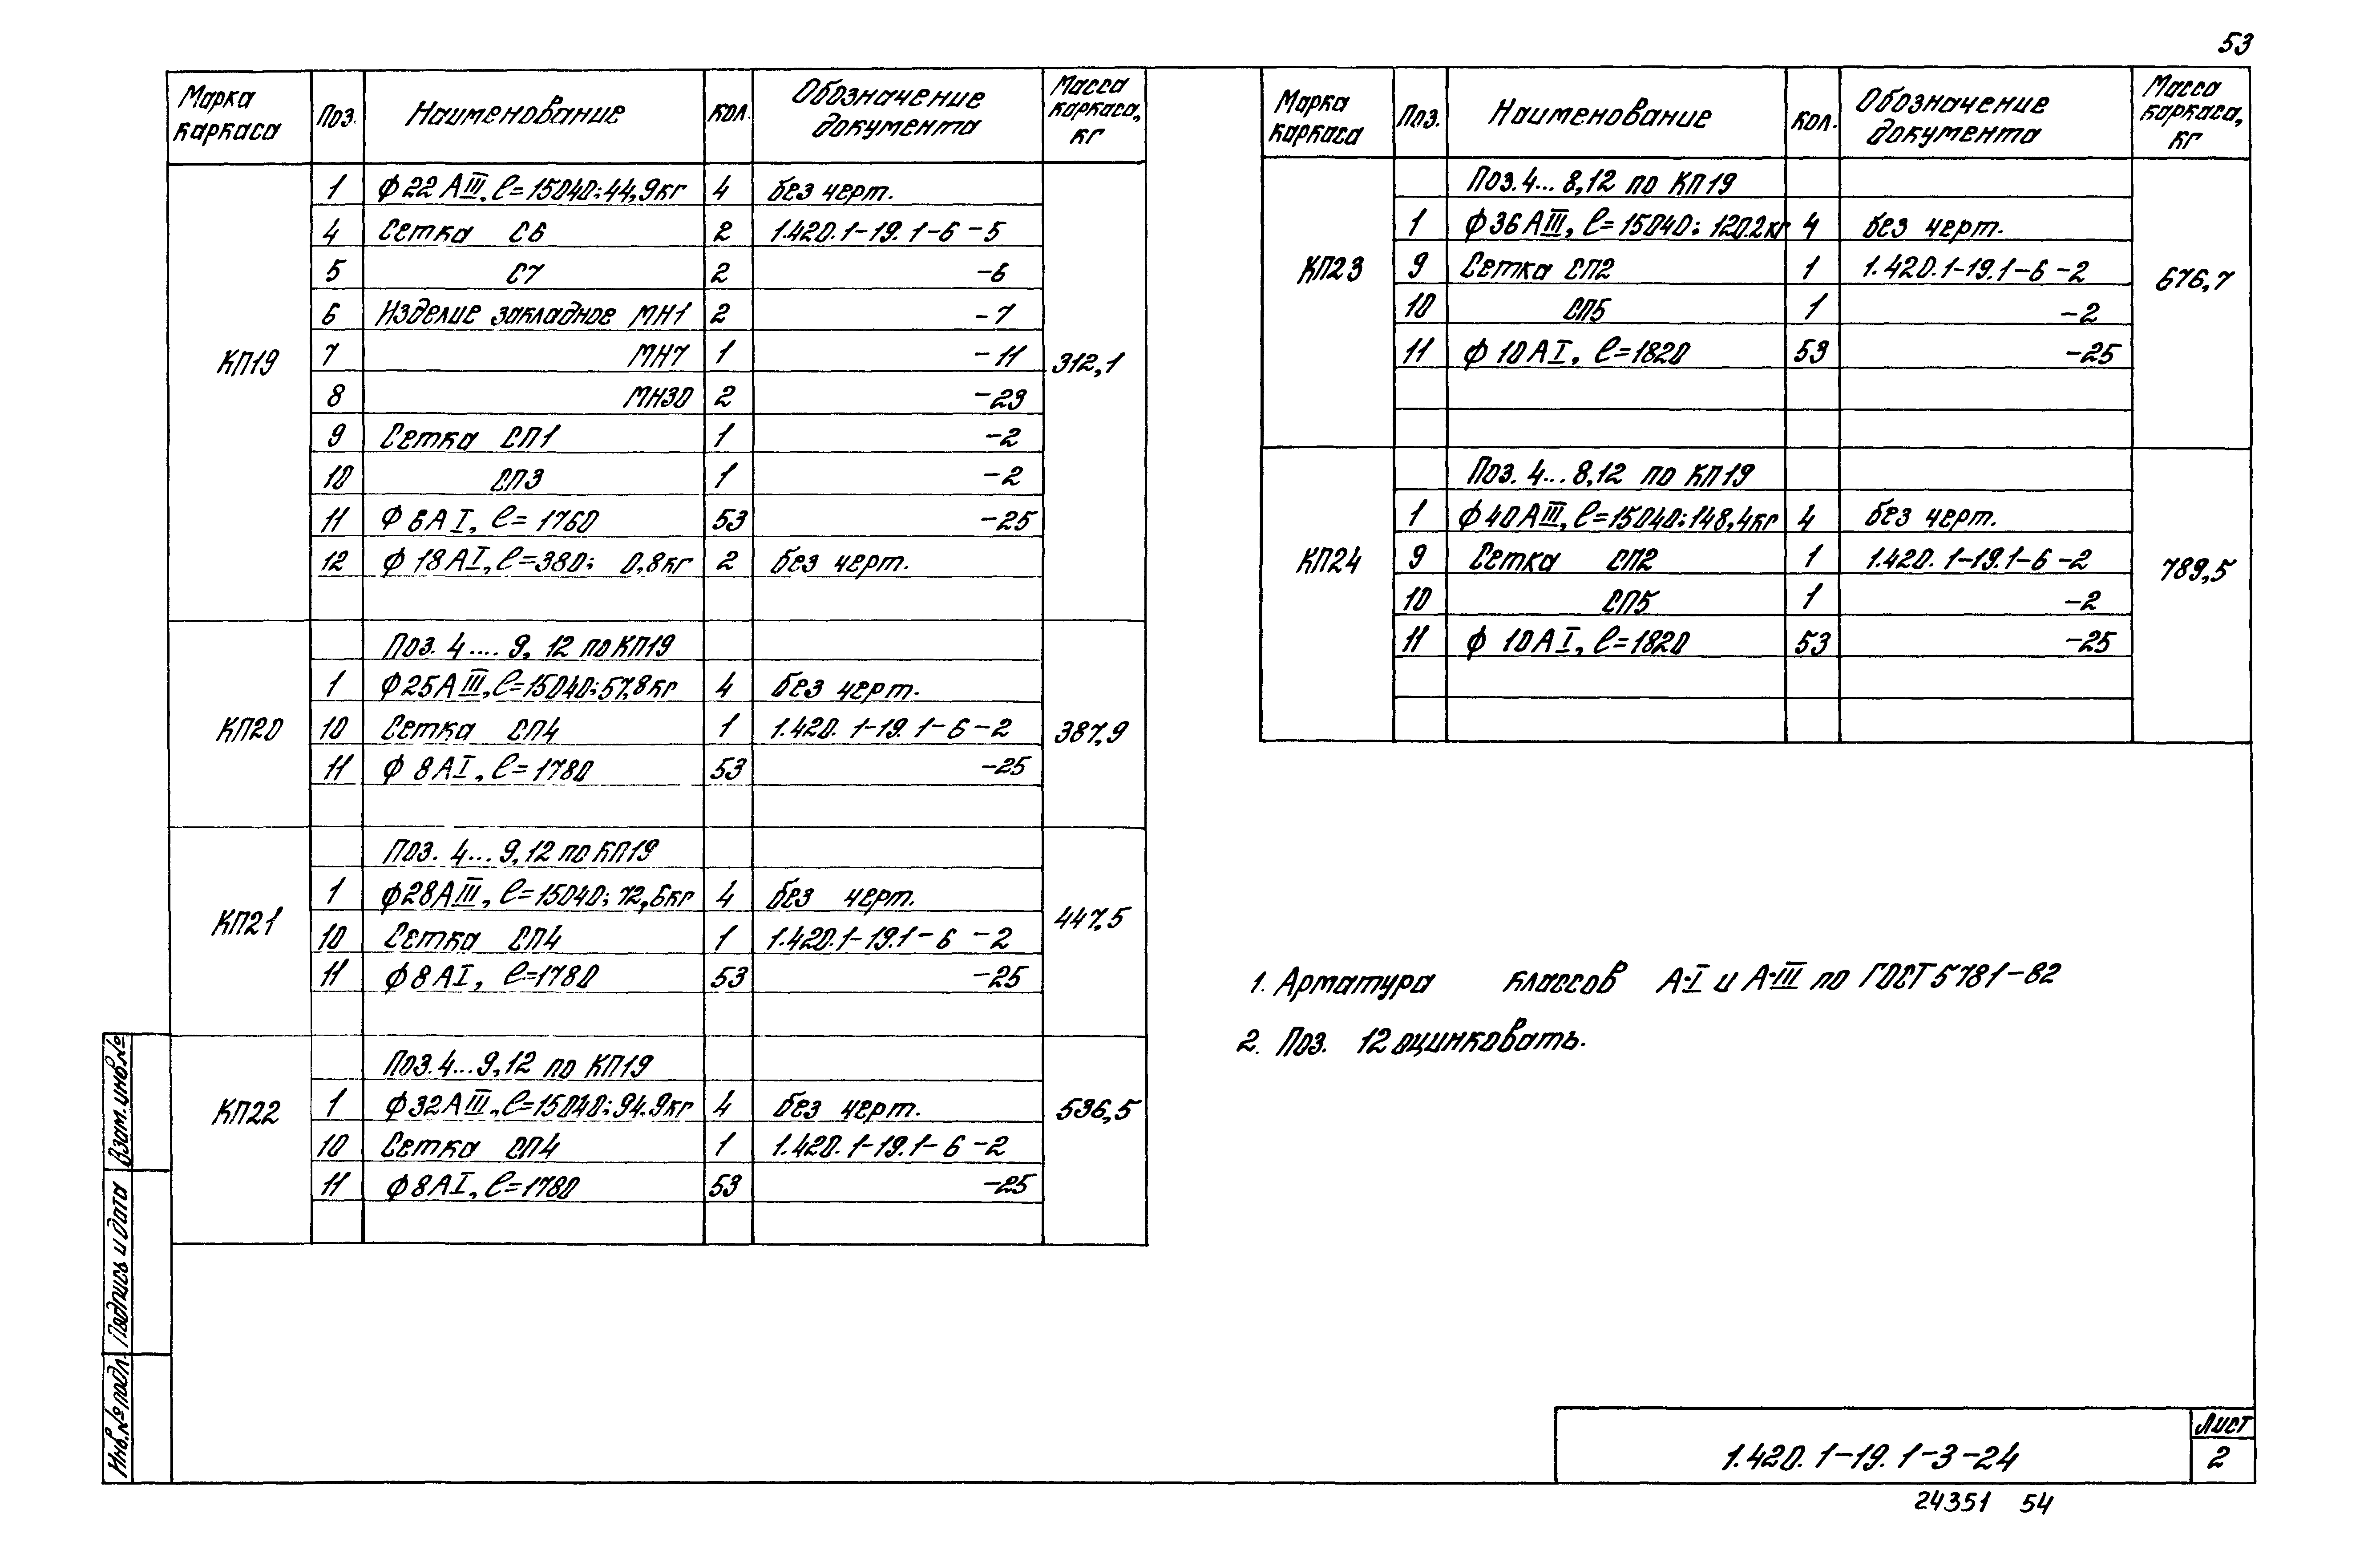 53
Марка каркаса | Поз. | Наименование | Кол. | Обозначение документа | Масса каркаса, кг
КП19 | 312,1
1 | ϕ22АIII, ℓ=15040; 44,9кг | 4 | без черт.
4 | Сетка С6 | 2 | 1.420.1-19.1-6-5
5 | С7 | 2 | -6
6 | Изделие закладное МН1 | 2 | -7
7 | МН7 | 1 | -11
8 | МН30 | 2 | -29
9 | Сетка СП1 | 1 | -2
10 | СП3 | 1 | -2
11 | ϕ6АI, ℓ=1760 | 53 | -25
12 | ϕ18АI, ℓ=380; 0,8кг | 2 | без черт.
КП20 | 387,9
Поз. 4....9, 12 по КП19
1 | ϕ25АIII, ℓ=15040; 57,8кг | 4 | без черт.
10 | Сетка СП4 | 1 | 1.420.1-19.1-6-2
11 | ϕ8АI, ℓ=1780 | 53 | -25
КП21 | 447,5
Поз. 4...9, 12 по КП19
1 | ϕ28АIII, ℓ=15040; 72,6кг | 4 | без черт.
10 | Сетка СП4 | 1 | 1.420.1-19.1-6-2
11 | ϕ8АI, ℓ=1780 | 53 | -25
КП22 | 536,5
Поз. 4...9, 12 по КП19
1 | ϕ32АIII, ℓ=15040; 94.9кг | 4 | без черт.
10 | Сетка СП4 | 1 | 1.420.1-19.1-6-2
11 | ϕ8АI, ℓ=1780 | 53 | -25
Марка каркаса | Поз. | Наименование | Кол. | Обозначение документа | Масса каркаса, кг
КП23 | 676,7
Поз. 4...8,12 по КП19
1 | ϕ36АIII, ℓ=15040; 120.2кг | 4 | без черт.
9 | Сетка СП2 | 1 | 1.420.1-19.1-6-2
10 | СП5 | 1 | -2
11 | ϕ10АI, ℓ=1820 | 53 | -25
КП24 | 789,5
Поз. 4...8,12 по КП19
1 | ϕ40АIII, ℓ=15040; 148,4кг | 4 | без черт.
9 | Сетка СП2 | 1 | 1.420.1-19.1-6-2
10 | СП5 | 1 | -2
11 | ϕ10АI, ℓ=1820 | 53 | -25
1. Арматура классов А-I и А-III по ГОСТ 5781-82
2. Поз. 12 оцинковать.
Взам. инв.№
Подпись и дата
Инв.№ подл.
1.420.1-19.1-3-24
Лист
2
24351 54